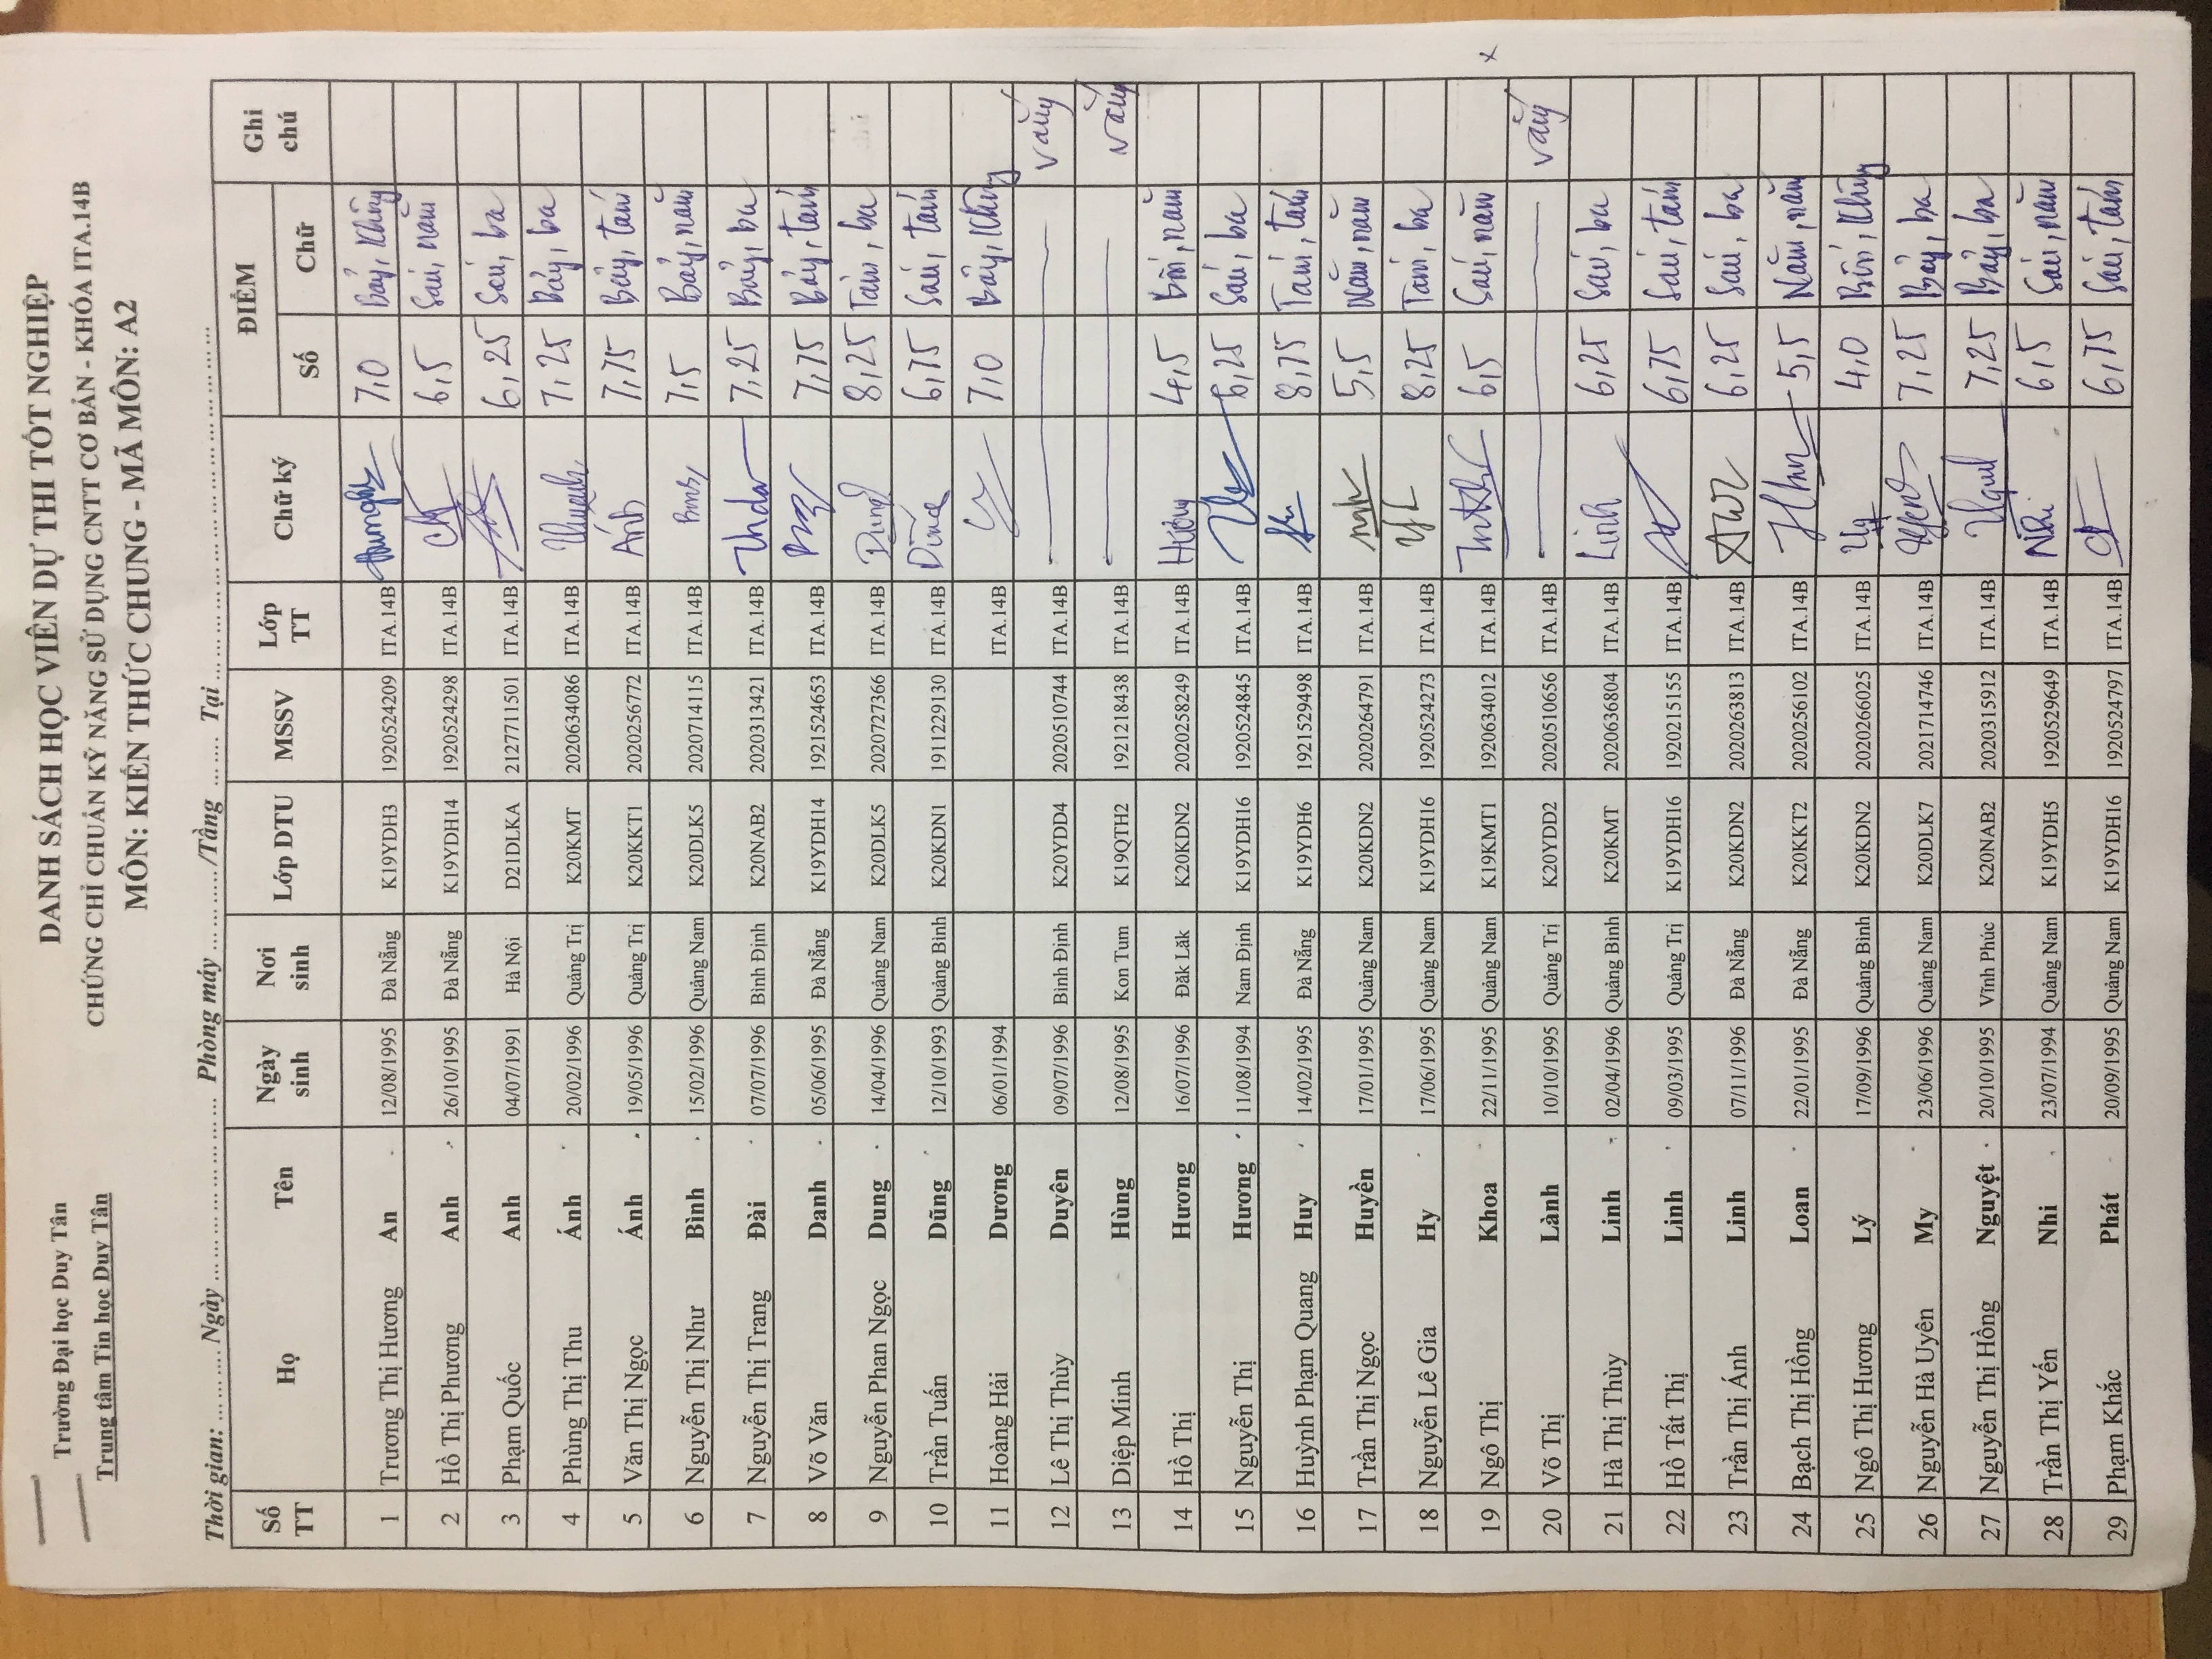 Trường Đại học Duy Tân
Trung tâm Tin học Duy Tân
DANH SÁCH HỌC VIÊN DỰ THI TỐT NGHIỆP
CHỨNG CHỈ CHUẨN KỸ NĂNG SỬ DỤNG CNTT CƠ BẢN - KHÓA ITA.14B
MÔN: KIẾN THỨC CHUNG - MÃ MÔN: A2
Thời gian: ... ...... Ngày ... ... ... ... ... ... ... Phòng máy ... ... ....../Tầng ... ... .... Tại ... ... ... ... ... ... ... ... ... ... ... ...
Số TT Họ Tên Ngày sinh Nơi sinh Lớp DTU MSSV Lớp TT Chữ ký ĐIỂM Số Chữ Ghi chú
1 Trương Thị Hương An 12/08/1995 Đà Nẵng K19YDH3 1920524209 ITA.14B 7,0 Bảy, không
2 Hồ Thị Phương Anh 26/10/1995 Đà Nẵng K19YDH14 1920524298 ITA.14B 6,5 Sáu, năm
3 Phạm Quốc Anh 04/07/1991 Hà Nội D21DLKA 2127711501 ITA.14B 6,25 Sáu, ba
4 Phùng Thị Thu Ánh 20/02/1996 Quảng Trị K20KMT 2020634086 ITA.14B 7,25 Bảy, ba
5 Văn Thị Ngọc Ánh 19/05/1996 Quảng Trị K20KKT1 2020256772 ITA.14B Ánh 7,75 Bảy, tám
6 Nguyễn Thị Như Bình 15/02/1996 Quảng Nam K20DLK5 2020714115 ITA.14B 7,5 Bảy, năm
7 Nguyễn Thị Trang Đài 07/07/1996 Bình Định K20NAB2 2020313421 ITA.14B 7,25 Bảy, ba
8 Võ Văn Danh 05/06/1995 Đà Nẵng K19YDH14 1921524653 ITA.14B 7,75 Bảy, tám
9 Nguyễn Phan Ngọc Dung 14/04/1996 Quảng Nam K20DLK5 2020727366 ITA.14B Dung 8,25 Tám, ba
10 Trần Tuấn Dũng 12/10/1993 Quảng Bình K20KDN1 1911229130 ITA.14B Dũng 6,75 Sáu, tám
11 Hoàng Hải Dương 06/01/1994 ITA.14B 7,0 Bảy, không
12 Lê Thị Thùy Duyên 09/07/1996 Bình Định K20YDD4 2020510744 ITA.14B Vắng
13 Diệp Minh Hùng 12/08/1995 Kon Tum K19QTH2 1921218438 ITA.14B Vắng
14 Hồ Thị Hương 16/07/1996 Đăk Lăk K20KDN2 2020258249 ITA.14B Hương 4,5 Bốn, năm
15 Nguyễn Thị Hương 11/08/1994 Nam Định K19YDH16 1920524845 ITA.14B 6,25 Sáu, ba
16 Huỳnh Phạm Quang Huy 14/02/1995 Đà Nẵng K19YDH6 1921529498 ITA.14B 8,75 Tám, tám
17 Trần Thị Ngọc Huyền 17/01/1995 Quảng Nam K20KDN2 2020264791 ITA.14B 5,5 Năm, năm
18 Nguyễn Lê Gia Hy 17/06/1995 Quảng Nam K19YDH16 1920524273 ITA.14B 8,25 Tám, ba
19 Ngô Thị Khoa 22/11/1995 Quảng Nam K19KMT1 1920634012 ITA.14B 6,5 Sáu, năm x
20 Võ Thị Lành 10/10/1995 Quảng Trị K20YDD2 2020510656 ITA.14B Vắng
21 Hà Thị Thùy Linh 02/04/1996 Quảng Bình K20KMT 2020636804 ITA.14B Linh 6,25 Sáu, ba
22 Hồ Tất Thị Linh 09/03/1995 Quảng Trị K19YDH16 1920215155 ITA.14B 6,75 Sáu, tám
23 Trần Thị Ánh Linh 07/11/1996 Đà Nẵng K20KDN2 2020263813 ITA.14B 6,25 Sáu, ba
24 Bạch Thị Hồng Loan 22/01/1995 Đà Nẵng K20KKT2 2020256102 ITA.14B 5,5 Năm, năm
25 Ngô Thị Hương Lý 17/09/1996 Quảng Bình K20KDN2 2020266025 ITA.14B 4,0 Bốn, không
26 Nguyễn Hà Uyên My 23/06/1996 Quảng Nam K20DLK7 2021714746 ITA.14B 7,25 Bảy, ba
27 Nguyễn Thị Hồng Nguyệt 20/10/1995 Vĩnh Phúc K20NAB2 2020315912 ITA.14B 7,25 Bảy, ba
28 Trần Thị Yến Nhi 23/07/1994 Quảng Nam K19YDH5 1920529649 ITA.14B Nhi 6,5 Sáu, năm
29 Phạm Khắc Phát 20/09/1995 Quảng Nam K19YDH16 1920524797 ITA.14B 6,75 Sáu, tám